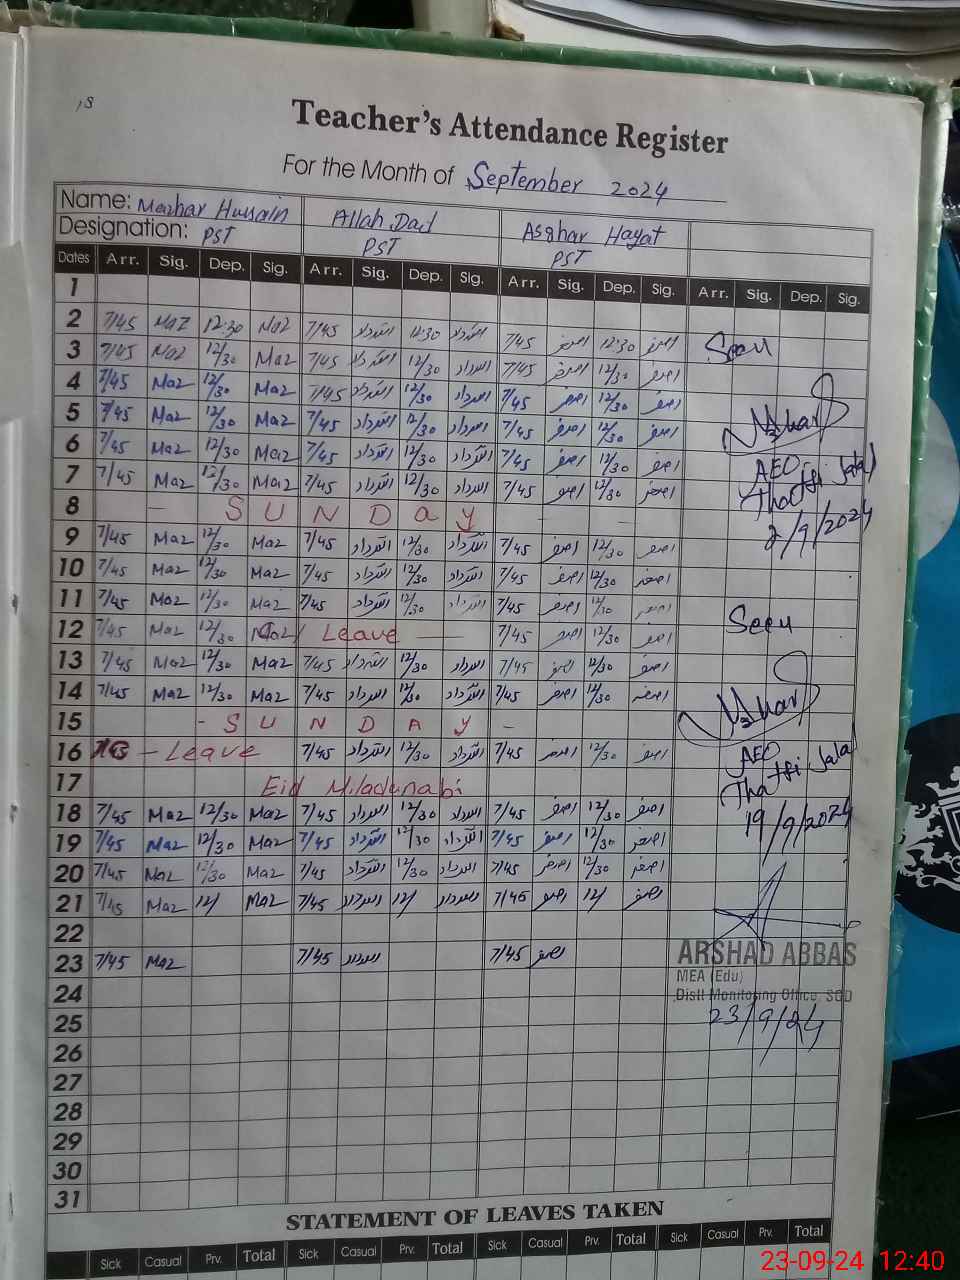 18
Teacher's Attendance Register
For the Month of September 2024
Name: Mazhar Hussain Allah Dad Asghar Hayat
Designation: PST PST PST
Dates Arr. Sig. Dep. Sig. Arr. Sig. Dep. Sig. Arr. Sig. Dep. Sig. Arr. Sig. Dep. Sig.
1
2 7/45 Maz 12:30 Maz 7/45 اللہ داد 12:30 اللہ داد 7/45 اصغر 12:30 اصغر
3 7/45 Maz 12/30 Maz 7/45 اللہ داد 12/30 اللہ داد 7/45 اصغر 12/30 اصغر Seen
4 7/45 Maz 12/30 Maz 7/45 اللہ داد 12/30 اللہ داد 7/45 اصغر 12/30 اصغر
5 7/45 Maz 12/30 Maz 7/45 اللہ داد 12/30 اللہ داد 7/45 اصغر 12/30 اصغر Mazhar
6 7/45 Maz 12/30 Maz 7/45 اللہ داد 12/30 اللہ داد 7/45 اصغر 12/30 اصغر AEO
7 7/45 Maz 12/30 Maz 7/45 اللہ داد 12/30 اللہ داد 7/45 اصغر 12/30 اصغر Thatthi Jalal
8 - SUNDAY - - 2/9/2024
9 7/45 Maz 12/30 Maz 7/45 اللہ داد 12/30 اللہ داد 7/45 اصغر 12/30 اصغر
10 7/45 Maz 12/30 Maz 7/45 اللہ داد 12/30 اللہ داد 7/45 اصغر 12/30 اصغر
11 7/45 Maz 12/30 Maz 7/45 اللہ داد 12/30 اللہ داد 7/45 اصغر 12/30 اصغر
12 7/45 Maz 12/30 Maz Leave — 7/45 اصغر 12/30 اصغر Seen
13 7/45 Maz 12/30 Maz 7/45 اللہ داد 12/30 اللہ داد 7/45 اصغر 12/30 اصغر
14 7/45 Maz 12/30 Maz 7/45 اللہ داد 12/30 اللہ داد 7/45 اصغر 12/30 اصغر
15 - SUNDAY - Mazhar
16 - Leave 7/45 اللہ داد 12/30 اللہ داد 7/45 اصغر 12/30 اصغر AEO
17 Eid Miladunabi Thatthi Jalal
18 7/45 Maz 12/30 Maz 7/45 اللہ داد 12/30 اللہ داد 7/45 اصغر 12/30 اصغر 19/9/2024
19 7/45 Maz 12/30 Maz 7/45 اللہ داد 12/30 اللہ داد 7/45 اصغر 12/30 اصغر
20 7/45 Maz 12/30 Maz 7/45 اللہ داد 12/30 اللہ داد 7/45 اصغر 12/30 اصغر
21 7/45 Maz 12/ Maz 7/45 اللہ داد 12/ اللہ داد 7/45 اصغر 12/ اصغر
22
23 7/45 Maz 7/45 اللہ داد 7/45 اصغر ARSHAD ABBAS
MEA (Edu)
24 Distt Monitoring Office, SGD
25 23/9/24
26
27
28
29
30
31
STATEMENT OF LEAVES TAKEN
Sick Casual Prv. Total Sick Casual Prv. Total Sick Casual Prv. Total Sick Casual Prv. Total
23-09-24 12:40